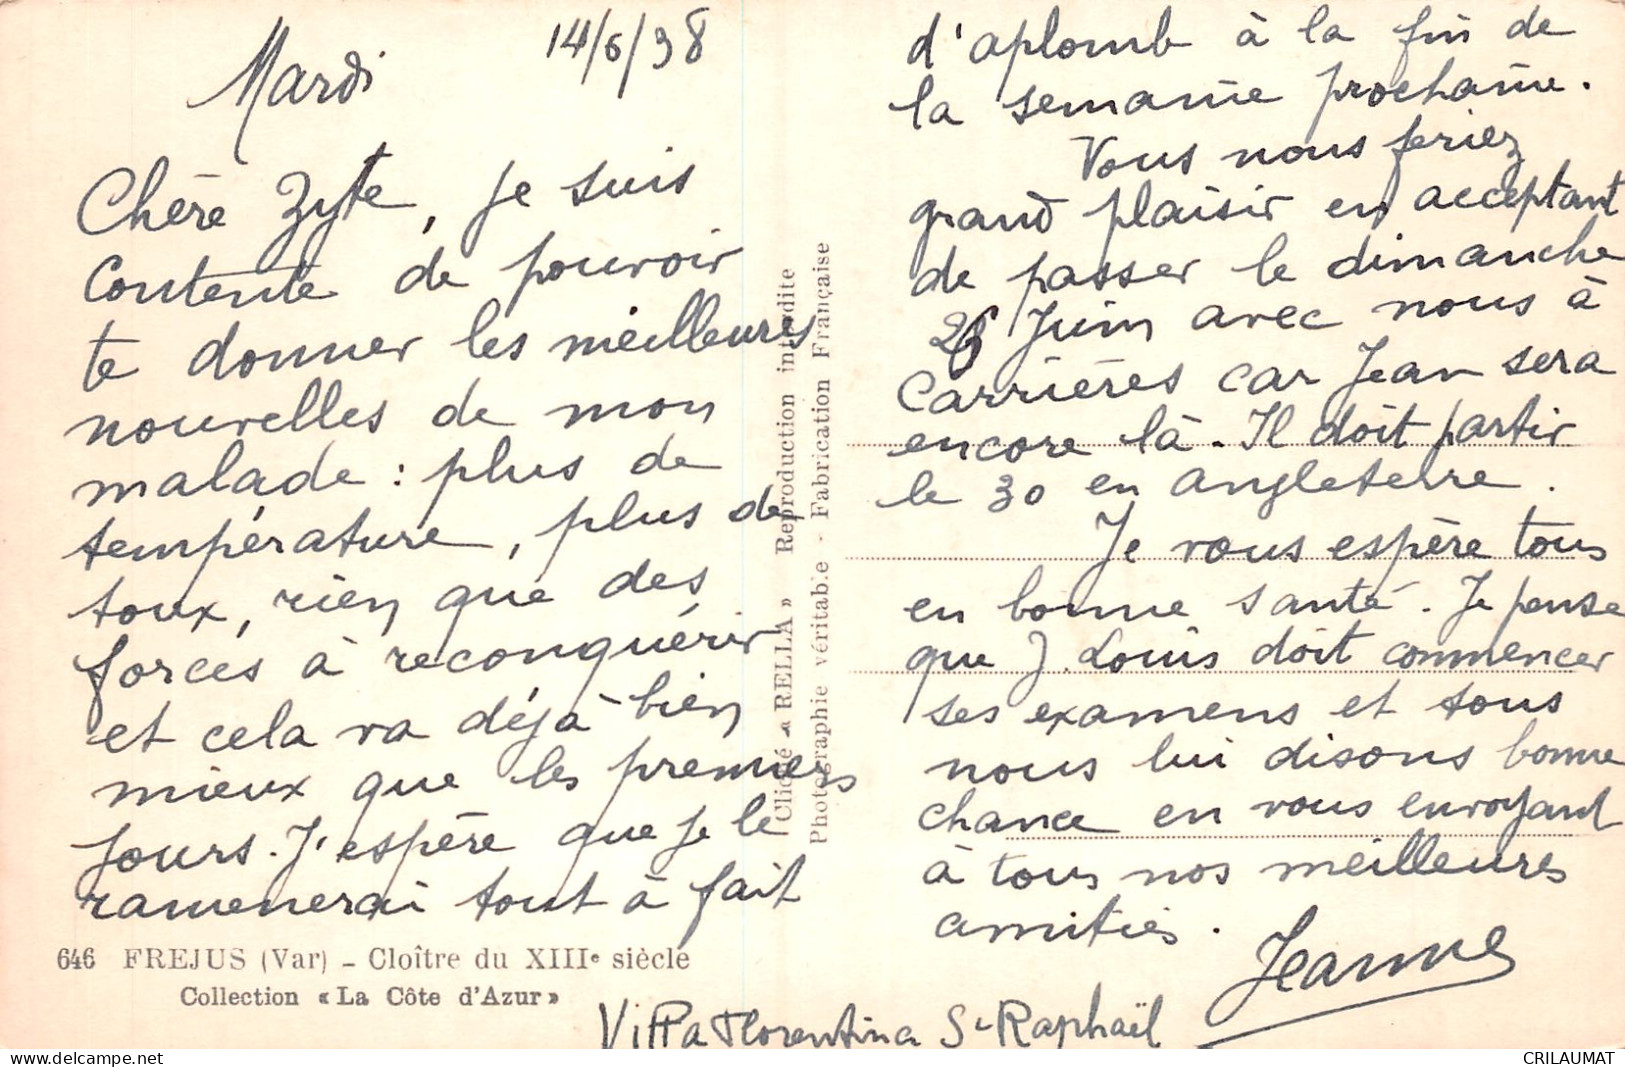 Mardi
14/6/38
Chère Zyte, je suis
contente de pouvoir
te donner les meilleures
nouvelles de mon
malade : plus de
température, plus de
toux, rien que des
forces à reconquérir
et cela va déjà bien
mieux que les premiers
jours. J'espère que je le
ramenerai tout à fait
646 FREJUS (Var) - Cloître du XIIIe siècle
Collection « La Côte d'Azur »
Cliché « RELLA » Reproduction interdite
Photographie véritable - Fabrication Française
d'aplomb à la fin de
la semaine prochaine.
Vous nous feriez
grand plaisir en acceptant
de passer le dimanche
26 Juin avec nous à
Carrières car Jean sera
encore là. Il doit partir
le 30 en angleterre.
Je vous espère tous
en bonne santé. Je pense
que J. Louis doit commencer
ses examens et tous
nous lui disons bonne
chance en vous envoyant
à tous nos meilleures
amitiés.
Jeanne
Villa Florentina St-Raphaël
CRILAUMAT
https://www.delcampe.net